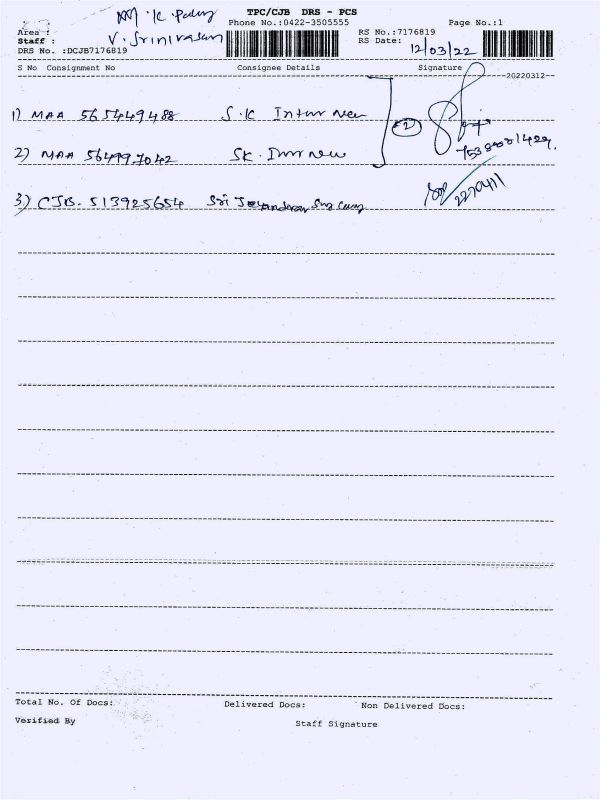 TPC/CJB DRS - PCS
Phone No.:0422-3505555 Page No.:1
Area :
Staff : V. Srinivasan
RS No.:7176819
RS Date: 12/03/22
DRS No. :DCJB7176819
S No Consignment No Consignee Details Signature
20220312
1) MAA 565449488 S.K
2) MAA 564997042 SK.
3) CJB. 513925654 Sri
2270411
Total No. Of Docs: Delivered Docs: Non Delivered Docs:
Verified By Staff Signature